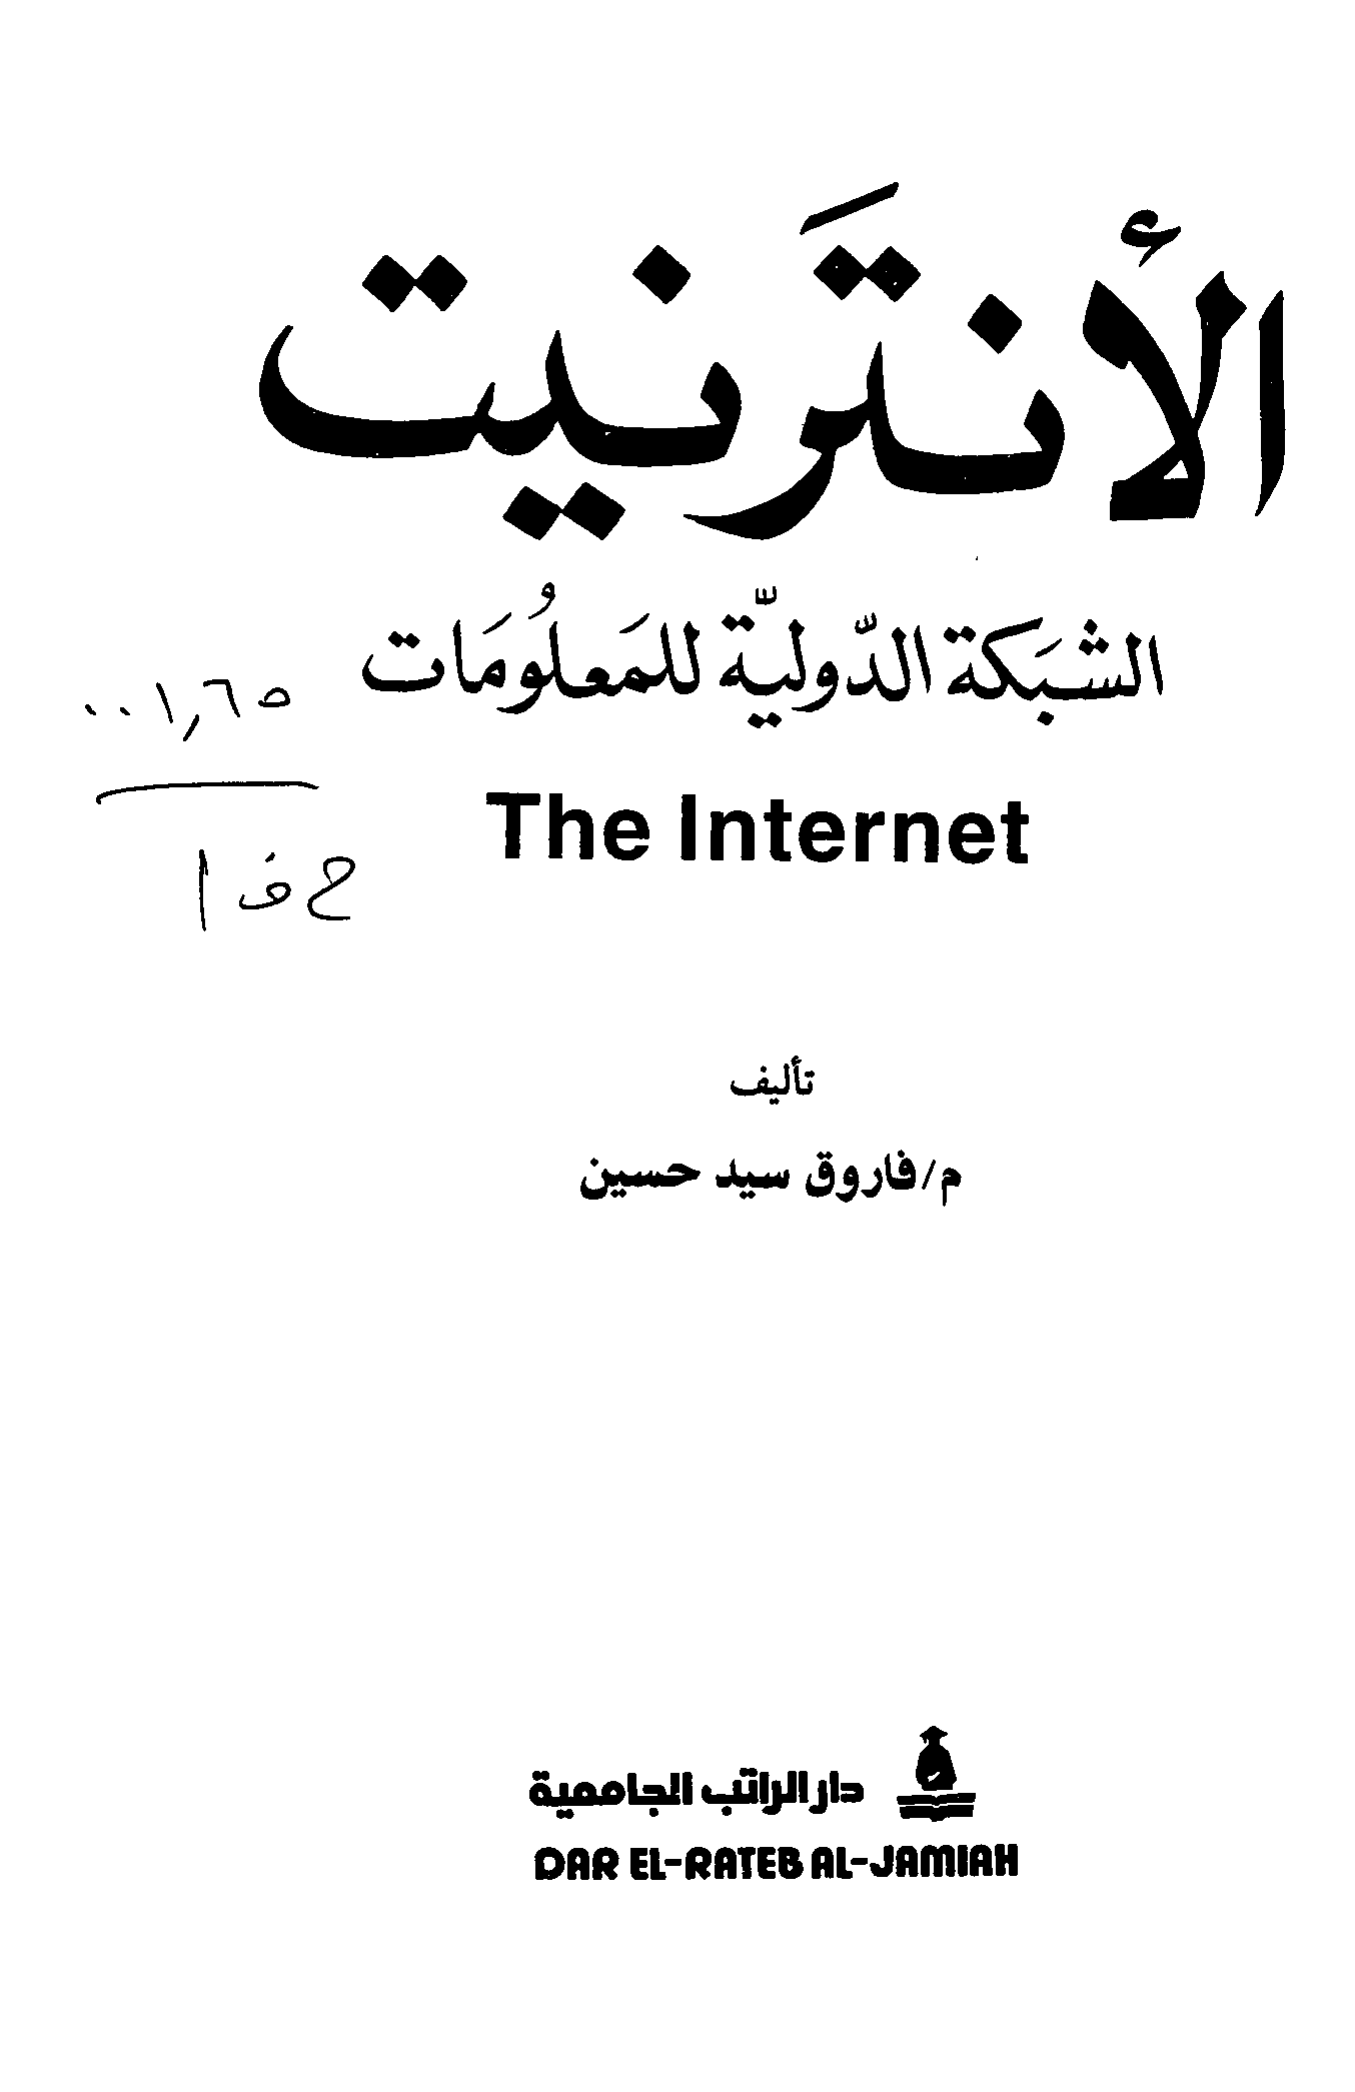 الأنترَنيت
الشبَكة الدّوليّة للمَعلُومَات
٠٠١٫٦٥
ح ف ا
The Internet
تأليف
م/فاروق سيد حسين
دار الراتب الجامعية
DAR EL-RATEB AL-JAMIAH